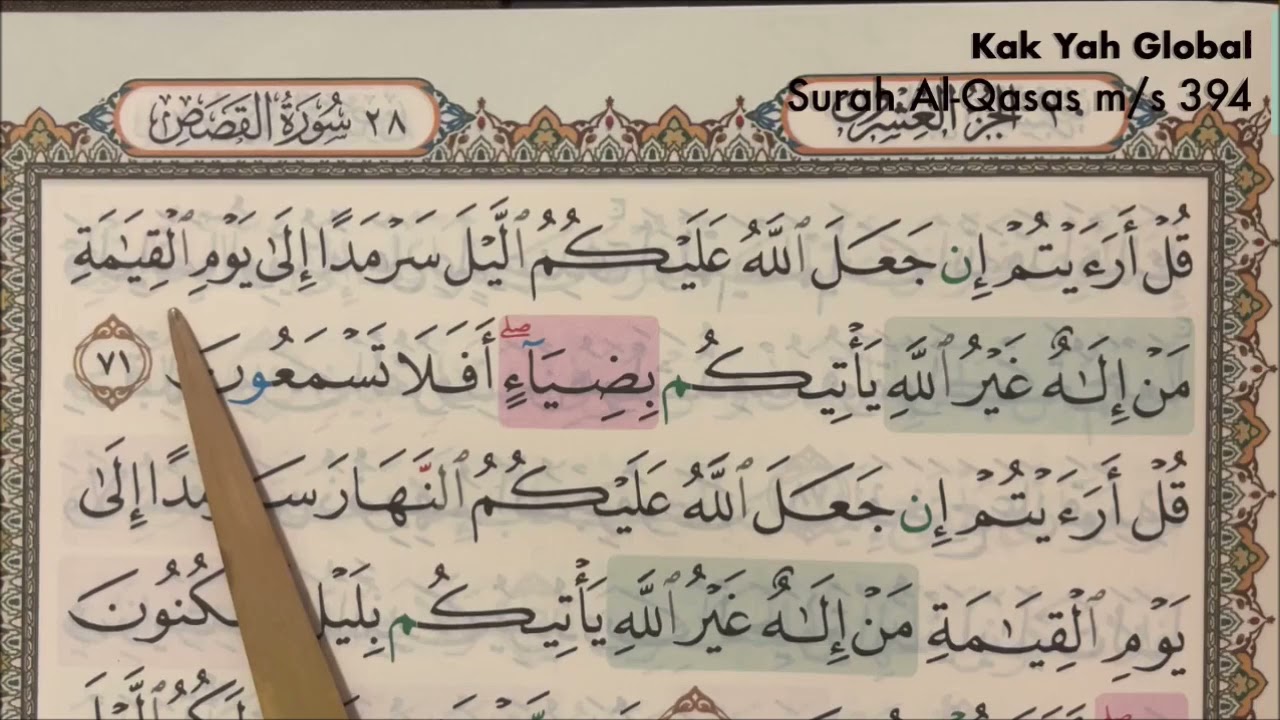 Kak Yah Global
Surah Al-Qasas m/s 394
سُورَةُ القَصَصِ ٢٨
قُلۡ أَرَءَيۡتُمۡ إِن جَعَلَ ٱللَّهُ عَلَيۡكُمُ ٱلَّيۡلَ سَرۡمَدًا إِلَىٰ يَوۡمِ ٱلۡقِيَٰمَةِ
مَنۡ إِلَٰهٌ غَيۡرُ ٱللَّهِ يَأۡتِيكُم بِضِيَآءٍۖ أَفَلَا تَسۡمَعُونَ ٧١
قُلۡ أَرَءَيۡتُمۡ إِن جَعَلَ ٱللَّهُ عَلَيۡكُمُ ٱلنَّهَارَ إِلَىٰ
يَوۡمِ ٱلۡقِيَٰمَةِ مَنۡ إِلَٰهٌ غَيۡرُ ٱللَّهِ يَأۡتِيكُم بِلَيۡلٖ